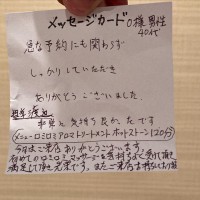 メッセージカード O様 男性
40代
急な予約にも関わらず
しっかりしていただき
ありがとうございました。
とても気持ち良かったです
(メニュー:ロミロミアロマトリートメント ホットストーン120分)
今日はご来店ありがとうございます。
初めてのロミロミマッサージを気持ちよく受けて頂き
満足して頂き光栄です。またご来店お待ちしております